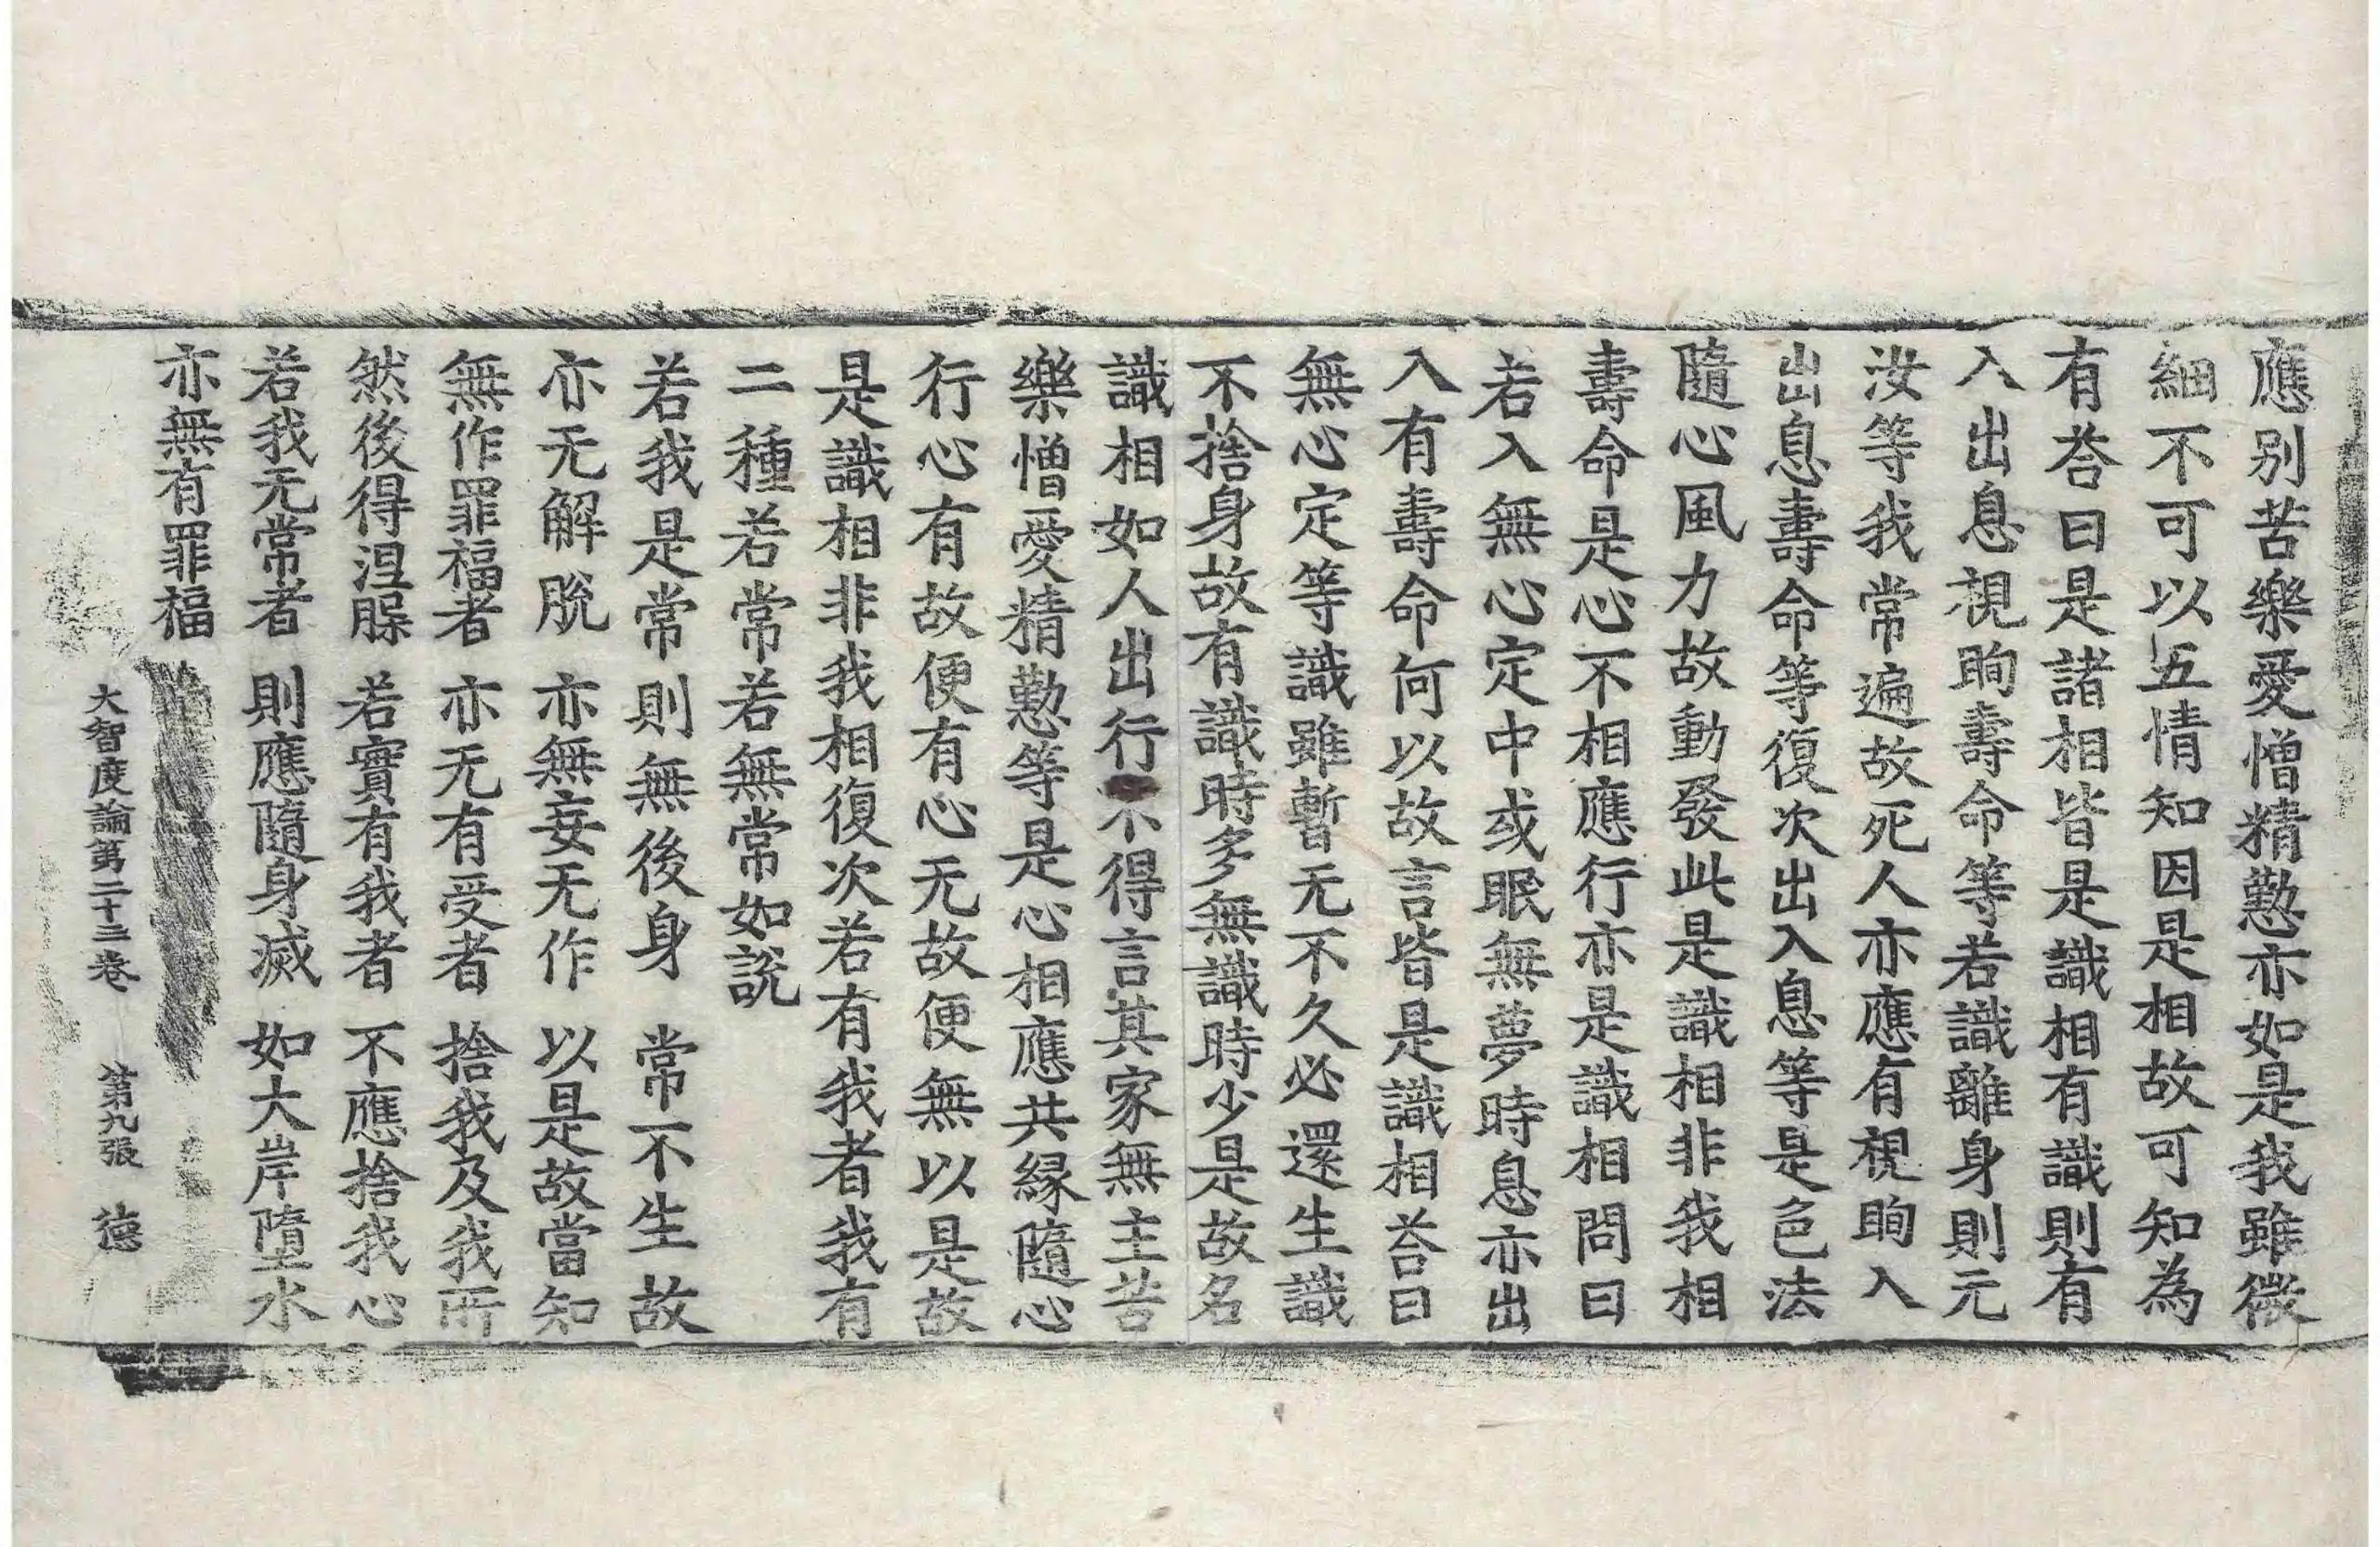 應別苦樂愛憎精懃亦如是我雖微
細不可以五情知因是相故可知為
有荅曰是諸相皆是識相有識則有
入出息視眴壽命等若識離身則无
汝等我常遍故死人亦應有視眴入
出息壽命等復次出入息等是色法
隨心風力故動發此是識相非我相
壽命是心不相應行亦是識相問曰
若入無心定中或眠無夢時息亦出
入有壽命何以故言皆是識相荅曰
無心定等識雖暫无不久必還生識
不捨身故有識時多無識時少是故名
識相如人出行不得言其家無主苦
樂憎愛精懃等是心相應共緣隨心
行心有故便有心无故便無以是故
是識相非我相復次若有我者我有
二種若常若無常如說
若我是常 則無後身 常不生故
亦无解脫 亦無妄无作 以是故當知
無作罪福者 亦无有受者 捨我及我所
然後得涅腂 若實有我者 不應捨我心
若我无常者 則應隨身滅 如大岸墮水
亦無有罪福
大智度論第二十二卷 第九張 德